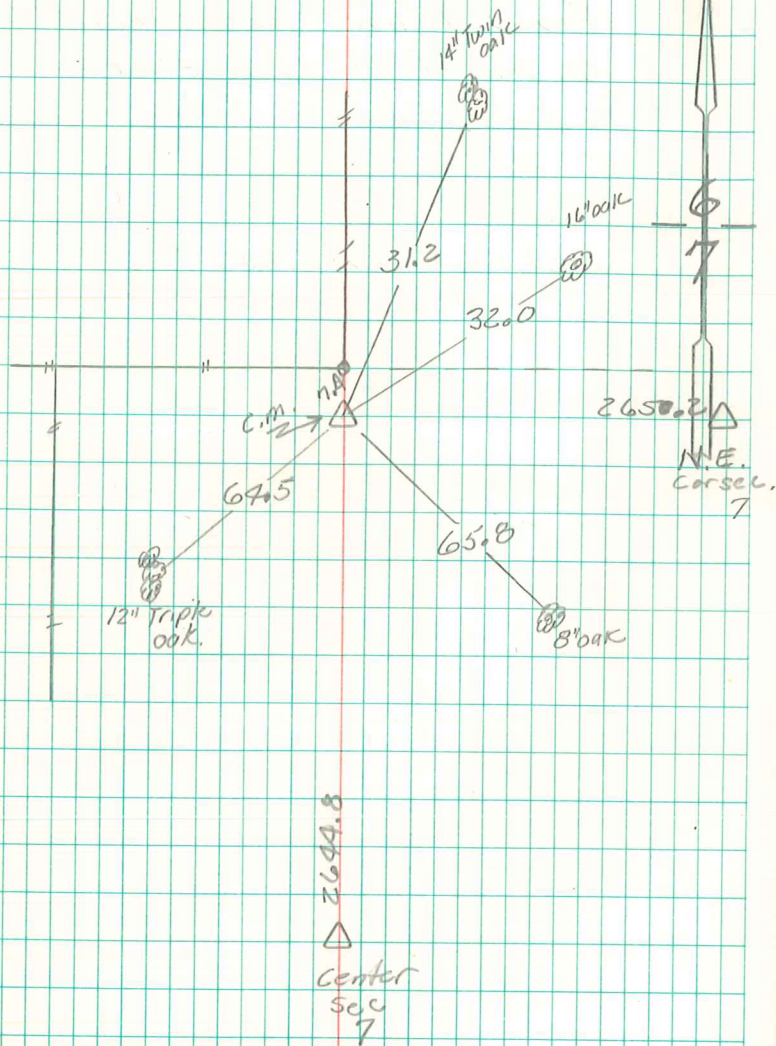 14" Twin
oak
16" oak
6
7
31.2
32.0
C.M.
2650.2
N.E.
Cor sec.
7
64.5
65.8
12" Triple
oak.
8" oak
2644.8
Center
Sec
7